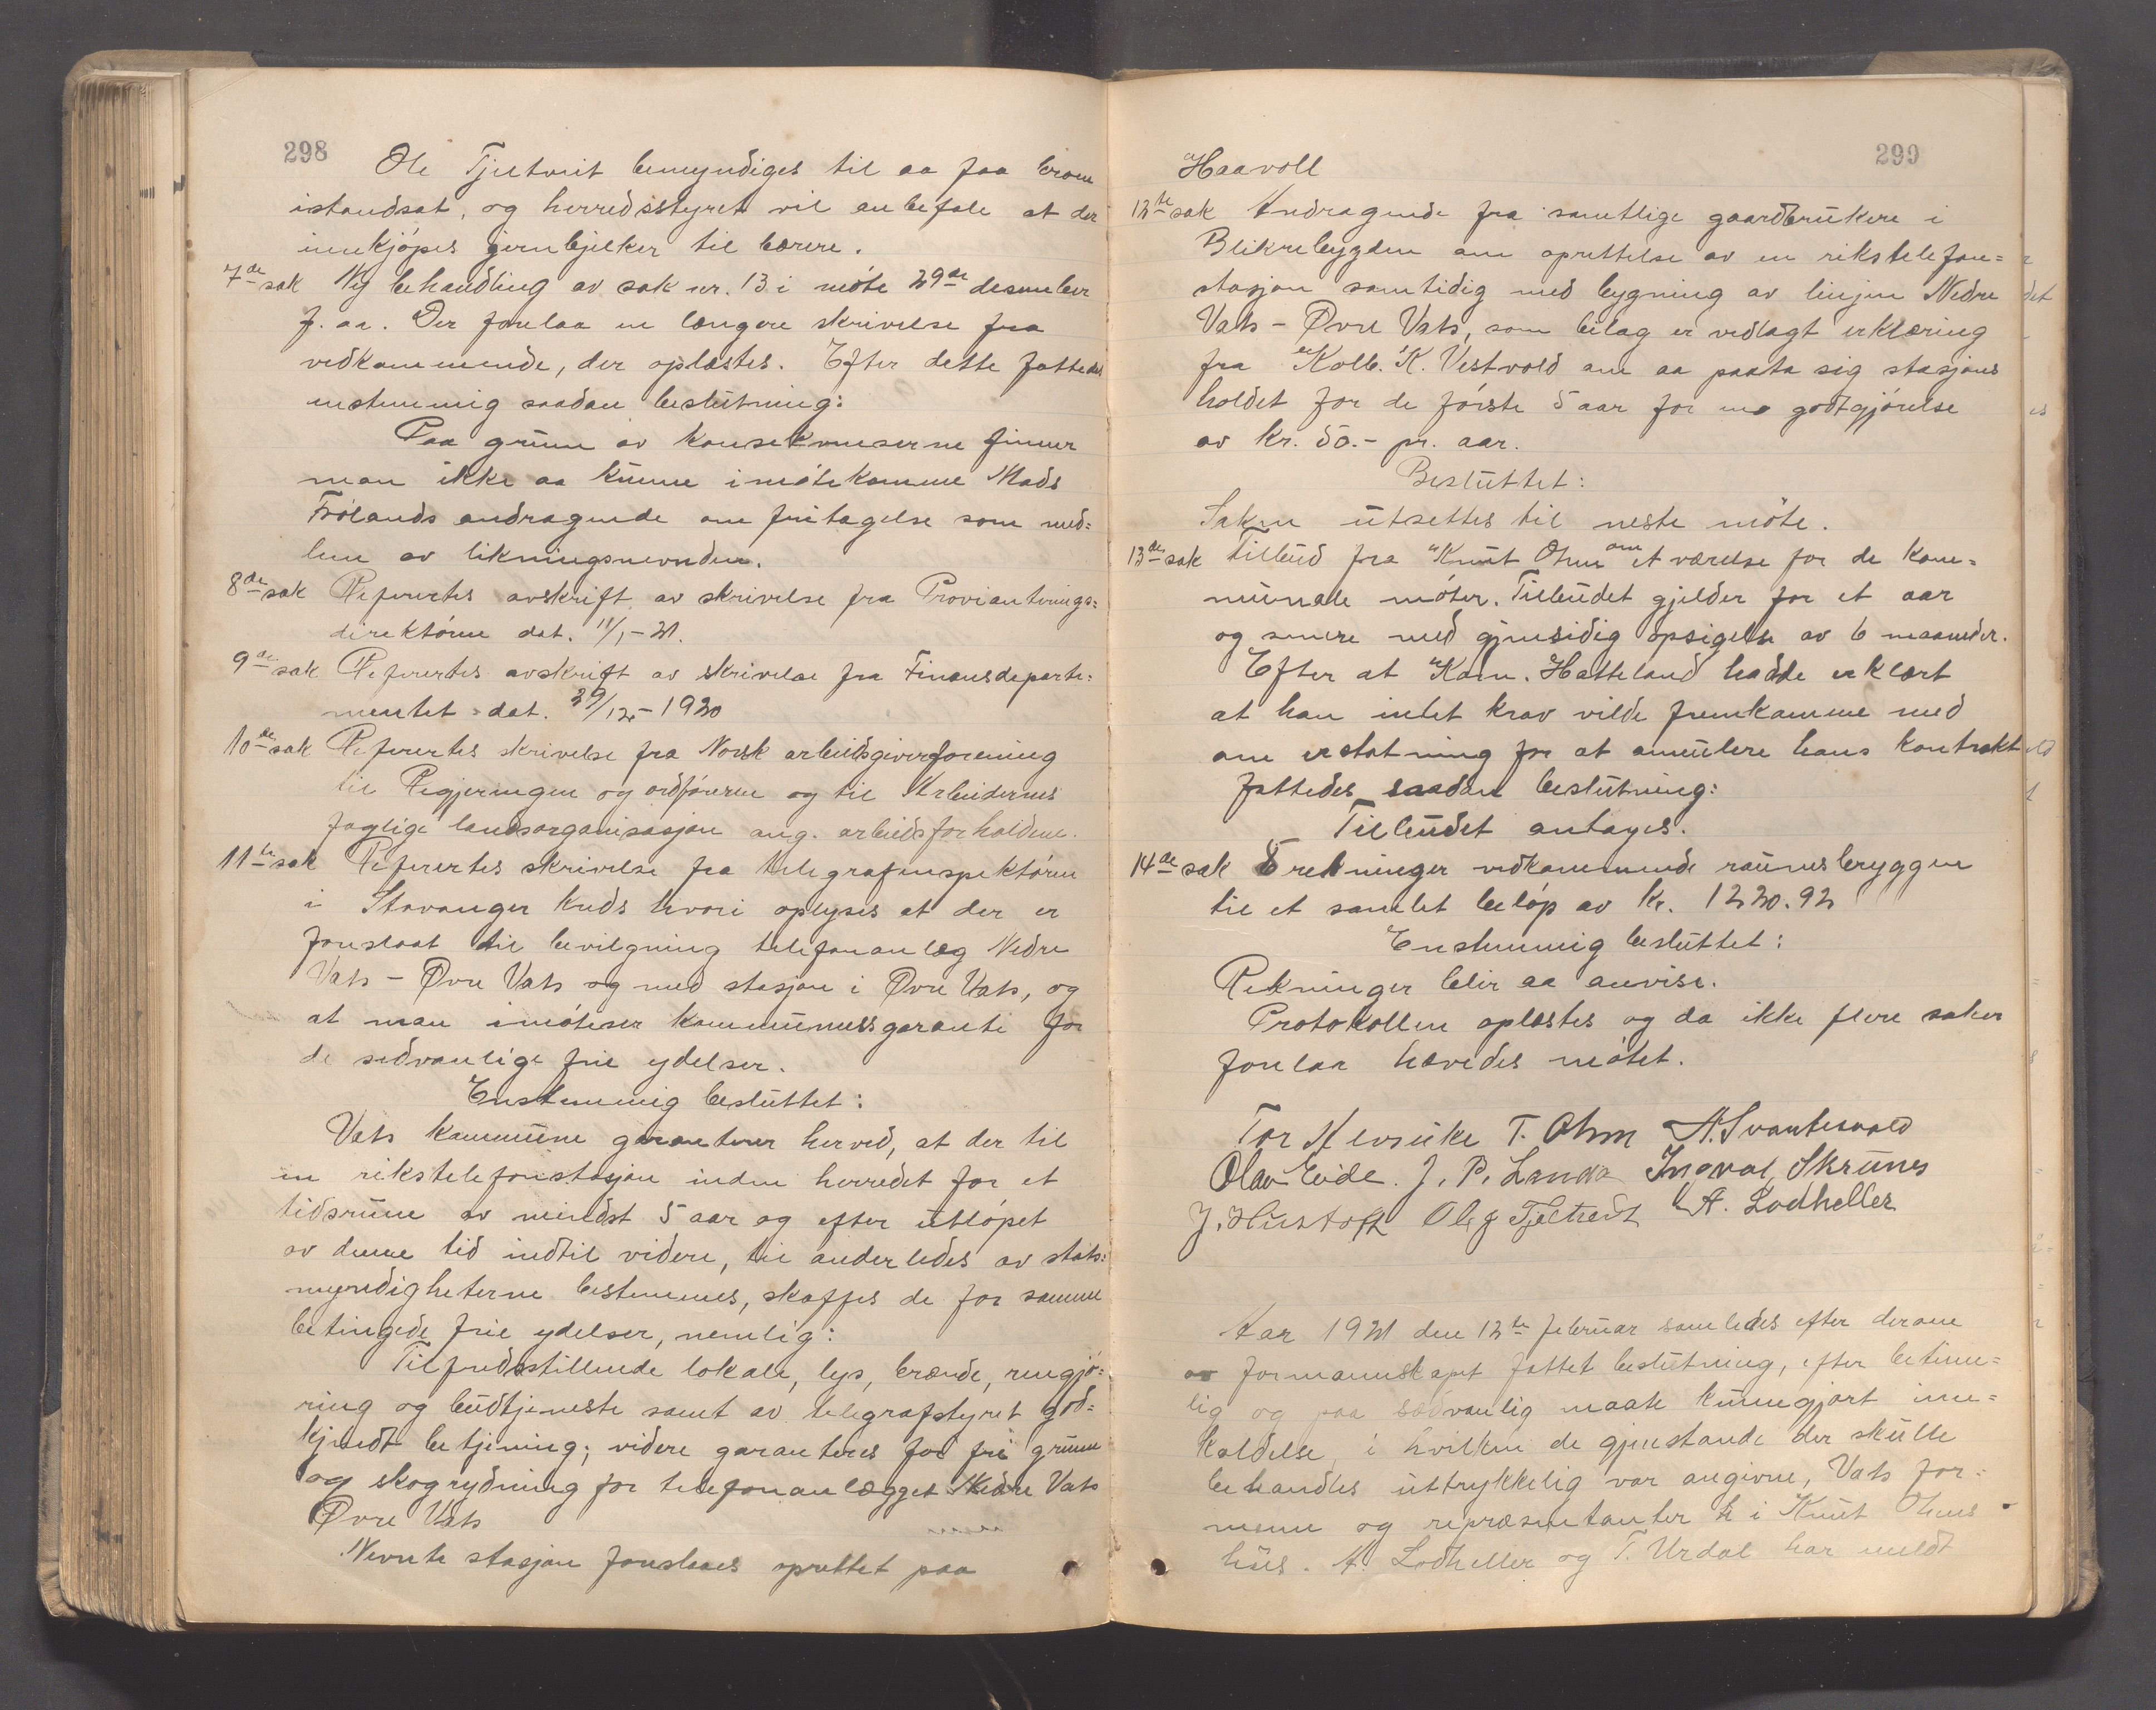 298
Ole Tjeltveit bemyndiges til aa faa broen
istandsat, og herredsstyret vil anbefale at der
innkjøpes jernbjelker til bærere.
7de sak Ny behandling av sak nr. 13 i møte 29de desember
f. aa. Der forelaa en længere skrivelse fra
vedkommende, der oplæstes. Efter dette fattedes
enstemmig saadan beslutning:
Paa grunn av konsekvenserne finner
man ikke aa kunne imøtekomme Mads
Frølands andragende om fritagelse som med=
lem av likningsnevnden.
8de sak Refertes avskrift av skrivelse fra Provianterings=
direktøren dat. 11/1-21.
9de sak Refertes avskrift av skrivelse fra Finansdeparte=
mentet dat. 29/12-1920
10de sak Refertes skrivelse fra Norsk arbeidsgiverforening
til Regjeringen og ordføreren og til Arbeidernes
faglige landsorganisasjon ang. arbeidsforholdene.
11te sak Refertes skrivelse fra telegrafinspektøren
i Stavanger kreds hvori oplyses at der er
foreslaat til bevilgning telefonanlæg Nedre
Vats - Øvre Vats og med stasjon i Øvre Vats, og
at man imøteser kommunens garanti for
de sedvanlige frie ydelser.
Enstemmig besluttet:
Vats kommune garanterer herved, at der til
en rikstelefonstasjon inden herredet for et
tidsrum av mindst 5 aar og efter utløpet
av denne tid indtil videre, til anderledes av stats=
myndigheterne bestemmes, skaffes de for samme
betingede frie ydelser, nemlig:
Tilfredsstillende lokale, lys, brænde, rengjø=
ring og budtjeneste samt av telegrafstyret god=
kjendt betjening; videre garanteres for fri grunn
og skogrydning for telefonanlægget Nedre Vats
Øvre Vats
Nevnte stasjon foreslaaes oprettet paa
299
Haavoll
12te sak Andragende fra samtlige gaardbrukere i
Blikrebygden om oprettelse av en rikstelefon=
stasjon samtidig med bygning av linjen Nedre
Vats - Øvre Vats, som bilag er vedlagt erklæring
fra Kolb. K. Vestvold om aa paata sig stasjons
holdet for de første 5 aar for en godtgjørelse
av kr. 50.- pr. aar.
Besluttet:
Saken utsettes til neste møte.
13de sak Tilbud fra Knut Ohm om et værelse for de kom=
munale møter. Tilbudet gjelder for et aar
og senere med gjensidig opsigelse av 6 maaneder.
Efter at Korn. Hatteland hadde erklært
at han intet krav vilde fremkomme med
om erstatning for at annulere hans kontrakt
fattedes saadan beslutning:
Tilbudet antages.
14de sak 8 rekninger vedkommende raunesbryggen
til et samlet beløp av Kr. 1220.92
Enstemmig besluttet:
Rekninger blir aa anvise.
Protokollen oplæstes og da ikke flere saker
forelaa hævedes møtet.
T. Ohm A. Svantesvold
Olav Eide. J. P. Landa Ingval Skrunes
J. Hustoft Ole J Tjeltveit A. Lodheller
Aar 1921 den 12te februar samledes efter derom
av formannskapet fattet beslutning, efter betime=
lig og paa sædvanlig maate kunngjort inn=
kaldelse, i hvilken de gjenstande der skulle
behandles uttrykkelig var angivne, Vats for=
menn og repræsentanter i Knut Ohms
hus. A. Lodheller og T. Urdal har meldt